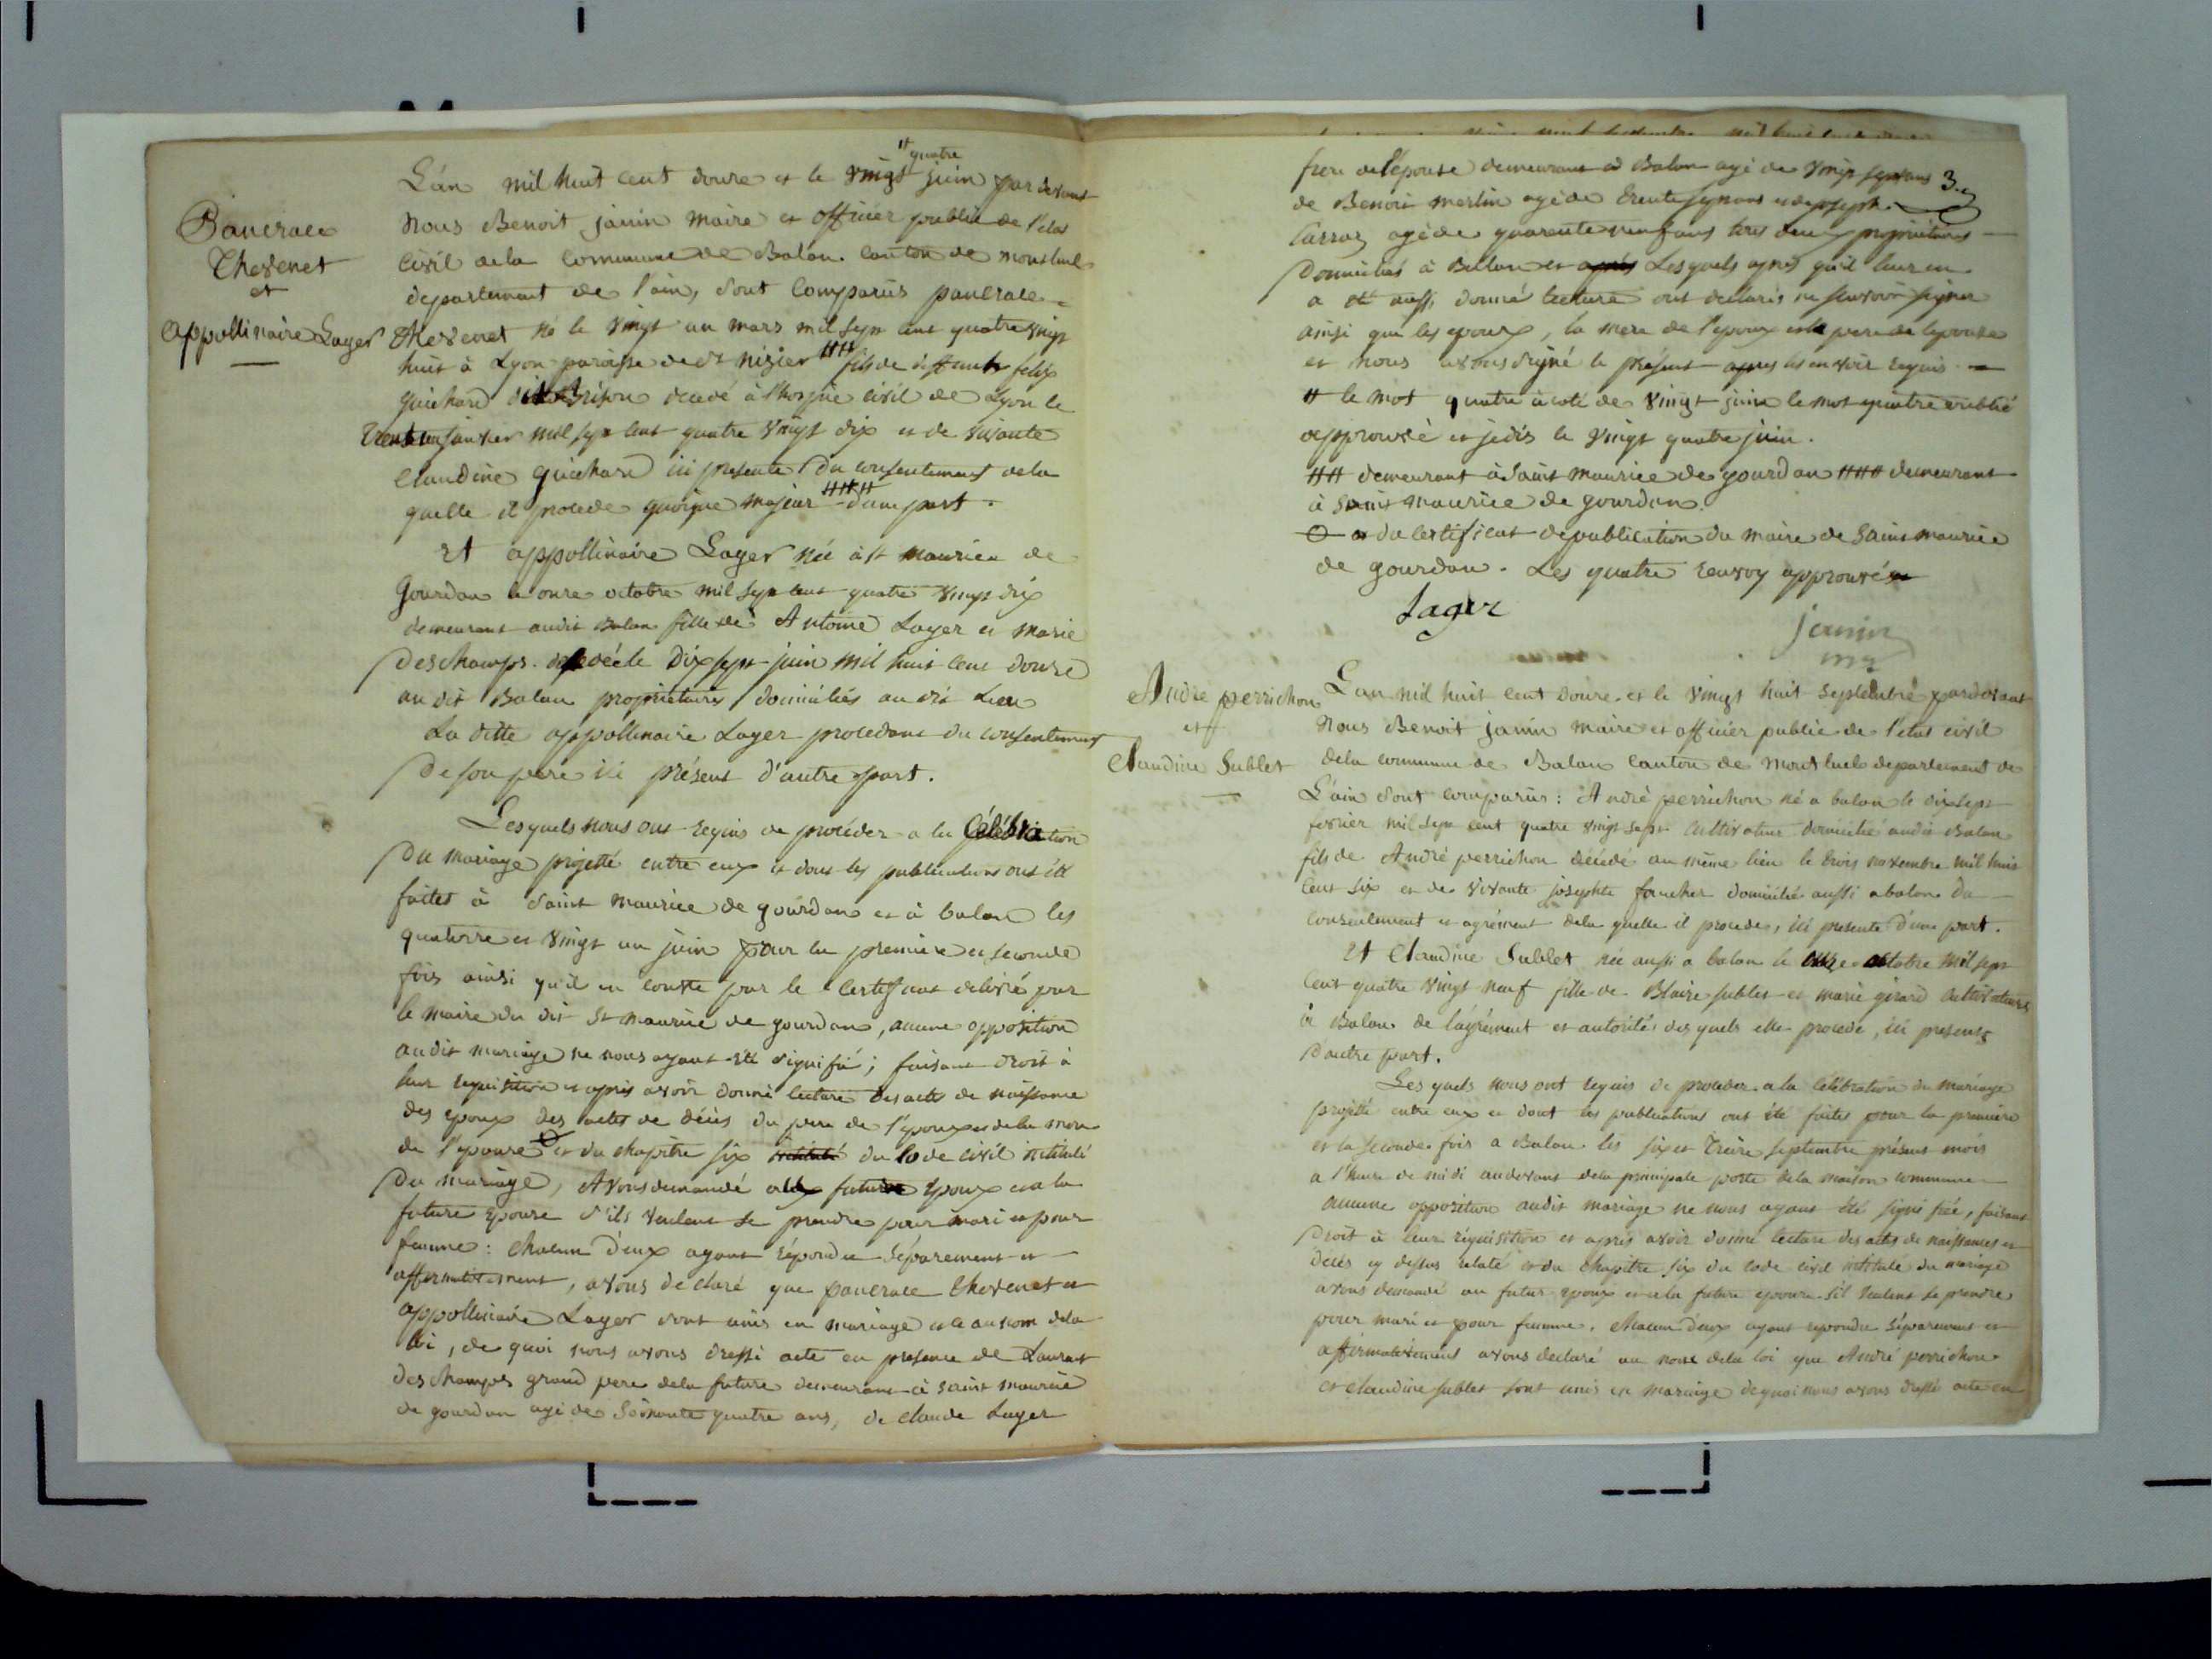 Pancrace
Thevenet
et
appollinaire Lager
L'an mil huit cent douze et le vingt # quatre juin par devant
Nous Benoit janin maire et officier public de l'etat
civil dela Commune de Balan. Canton de montluel
departement de l'ain, sont Comparus pancrace =
Thevenet né le vingt un mars mil sept cent quatre vingt
huit à Lyon paroisse de st nizier ## fils de deffunt felix
guichard decedé à l'hospice civil de Lyon le
trente un janvier mil sept cent quatre vingt dix et de vivante
Claudine guichard ici presente du consentement dela
quelle il procede quoique majeur ### d'une part.
Et appollinaire Lager née à st maurice de
Gourdan le onze octobre mil sept cent quatre vingt dix
demeurant audit Balan fille de Antoine Lager et Marie
Deschamps. decedée le dix sept juin mil huit cent douze
au dit Balan propriétaires domiciliés au dit Lieu
La ditte appollinaire Lager procedant du consentement
De son pere ici présent d'autre part.
Lesquels nous ont requis de procéder a la Célébration
Du mariage projetté entre eux et dont les publications ont été
faites à Saint Maurice de gourdan et à balan les
quatorze et vingt un juin pour la premiere et seconde
fois ainsi qu'il en conste par le Certificat delivré par
le maire du dit St maurice de gourdan, aucune opposition
audit mariage ne nous ayant été signifié; faisant droit à
leur requisition et après avoir donné lecture des actes de naissance
des epoux des actes de décès du pere de l'epoux et de la mere
de l'epouse et du chapitre six du Code civil intitulé
Du mariage, Avons demandé aux futurs epoux et a la
future Epouse s'ils veulent se prendre pour mari et pour
femme: chacun d'eux ayant répondu séparement et
affirmativement, avons declaré que pancrace thevenet et
appollinaire Lager sont unis en mariage et ce au nom dela
loi, de quoi nous avons dressé acte en presence de Laurent
deschamps grand pere dela future demeurant à saint maurice
de gourdan agé de Soixante quatre ans, de claude Lager
frere de l'epouse demeurant à Balan agé de vingt sept ans 3.
de Benoit merlin agé de trente sept ans et de joseph
Carraz agé de quarente neuf ans tous deux propriétaires
Domiciliés à Ballan et Lesquels après qu'il leur en
a été aussi donné lecture ont declarés ne scavoir signer
ainsi que les epoux, la mere de l'epoux et le pere de l'epouse
et nous avons signé le présent apres les en avoir requis
# le mot quatre à coté de vingt juin le mot quatre oublié
approuvé et je dis le vingt quatre juin.
## demeurant à Saint maurice de gourdan ### demeurant
à Saint maurice de gourdan.
du certificat de publication du maire de Saint maurice
de gourdan. Les quatre renvoy approuvé
Lager
janin
Andre perrichon
et
Claudine Sublet
L'an mil huit cent douze. et le vingt huit septembre pardevant
Nous Benoit janin maire et officier public de l'etat civil
dela commune de Balan canton de Montluel departement de
L'ain sont comparus: André perrichon né a balan le dix sept
fevrier mil sept cent quatre vingt sept Cultivateur domicilié audit Balan
fils de André perrichon décedé au même lieu le trois novembre mil huit
Cent six et de vivante josephte foucher domicilié aussi a balan. Du
consentement et agrément dela quelle il procede, ici presente d'une part.
Et Claudine Sublet née aussi a balan le onze octobre mil sept
Cent quatre vingt neuf fille de Blaise sublet et marie girard Cultivateurs
à Balan. de l'agrément et autorités des quels elle procede, ici presents
d'autre part.
Les quels nous ont requis de proceder a la celebration du mariage
projetté entre eux et dont les publications ont été faites pour la premiere
et la seconde fois a Balan les six et treize septembre présent mois
a l'heure de midi audevant dela principale porte dela maison commune
aucune opposition audit mariage ne nous ayant été signifiée, faisant
Droit à leur réquisition et après avoir donné lecture des actes de naissances et
décès cy dessus relaté et du chapitre six du code civil intitulé du mariage
avons demandé au futur epoux et a la future epouse s'il veulent se prendre
pour mari et pour femme. chacun d'eux ayant repondu séparement et
affirmativement avons declaré au nom dela loi que André perrichon
et claudine sublet sont unis en mariage de quoi nous avons dressé acte en